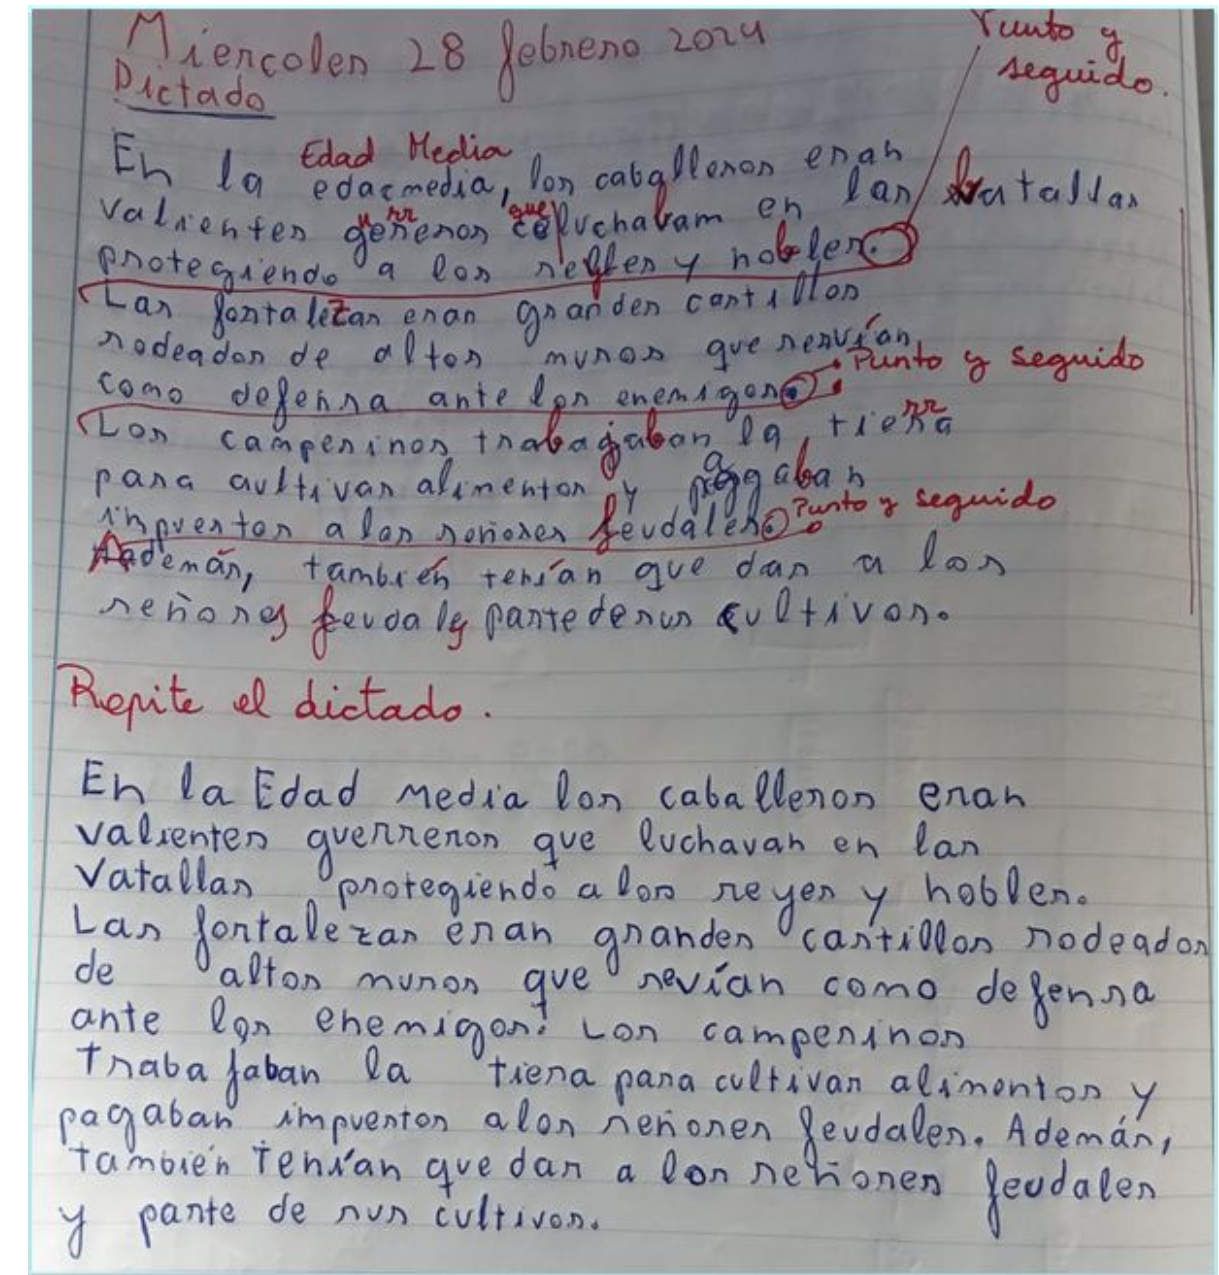 Miercoles 28 febrero 2024
Punto y
seguido.
Dictado
Edad Media
En la edacmedia, los caballeros eran
rr que
valientes generos luchabam en las batallas
protegiendo a los reyes y nobles.
Las fortalezas eran grandes castillos
rodeados de altos muros que servían
Punto y seguido
como defensa ante los enemigos.
rr
Los campesinos trabajaban la tierra
para cultivar alimentos y pagaban
Punto y seguido
impuestos a los señores feudales.
Además, también tenían que dar a los
señores feudales parte de sus cultivos.
Repite el dictado.
En la Edad media los caballeros eran
valientes guerreros que luchavan en las
Vatallas protegiendo a los reyes y nobles.
Las fortalezas eran grandes castillos rodeados
de altos muros que sevían como defensa
ante los enemigos. Los campesinos
Trabajaban la tiera para cultivar alimentos y
pagaban impuestos a los señores feudales. Además,
también tenían que dar a los señores feudales
y parte de sus cultivos.